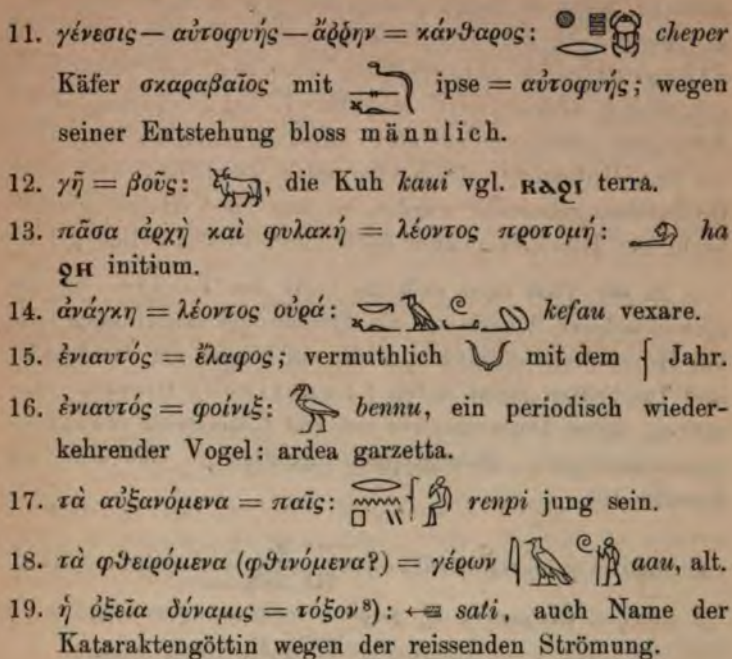 11. γένεσις — αὐτοφυής — ἄῤῥην = κάνθαρος: cheper
Käfer σκαραβαῖος mit ipse = αὐτοφυής; wegen
seiner Entstehung bloss männlich.
12. γῆ = βοῦς: , die Kuh kaui vgl. ⲕⲁϩⲓ terra.
13. πᾶσα ἀρχὴ καὶ φυλακή = λέοντος προτομή: ha
ϩⲏ initium.
14. ἀνάγκη = λέοντος οὐρά: kefau vexare.
15. ἐνιαυτός = ἔλαφος; vermuthlich mit dem Jahr.
16. ἐνιαυτός = φοίνιξ: bennu, ein periodisch wieder-
kehrender Vogel: ardea garzetta.
17. τὰ αὐξανόμενα = παῖς: renpi jung sein.
18. τὰ φθειρόμενα (φθινόμενα?) = γέρων aau, alt.
19. ἡ ὀξεῖα δύναμις = τόξον⁸): sati, auch Name der
Kataraktengöttin wegen der reissenden Strömung.